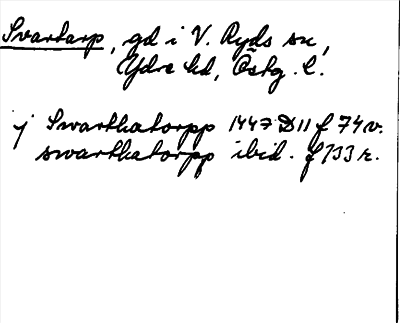 Svartarp, gd i V. Ryds sn,
Ydre hd, Östg. l.
j Swarthatorpp 1447 D 11 f 74 v.
swarthatorpp ibid. f 133 r.